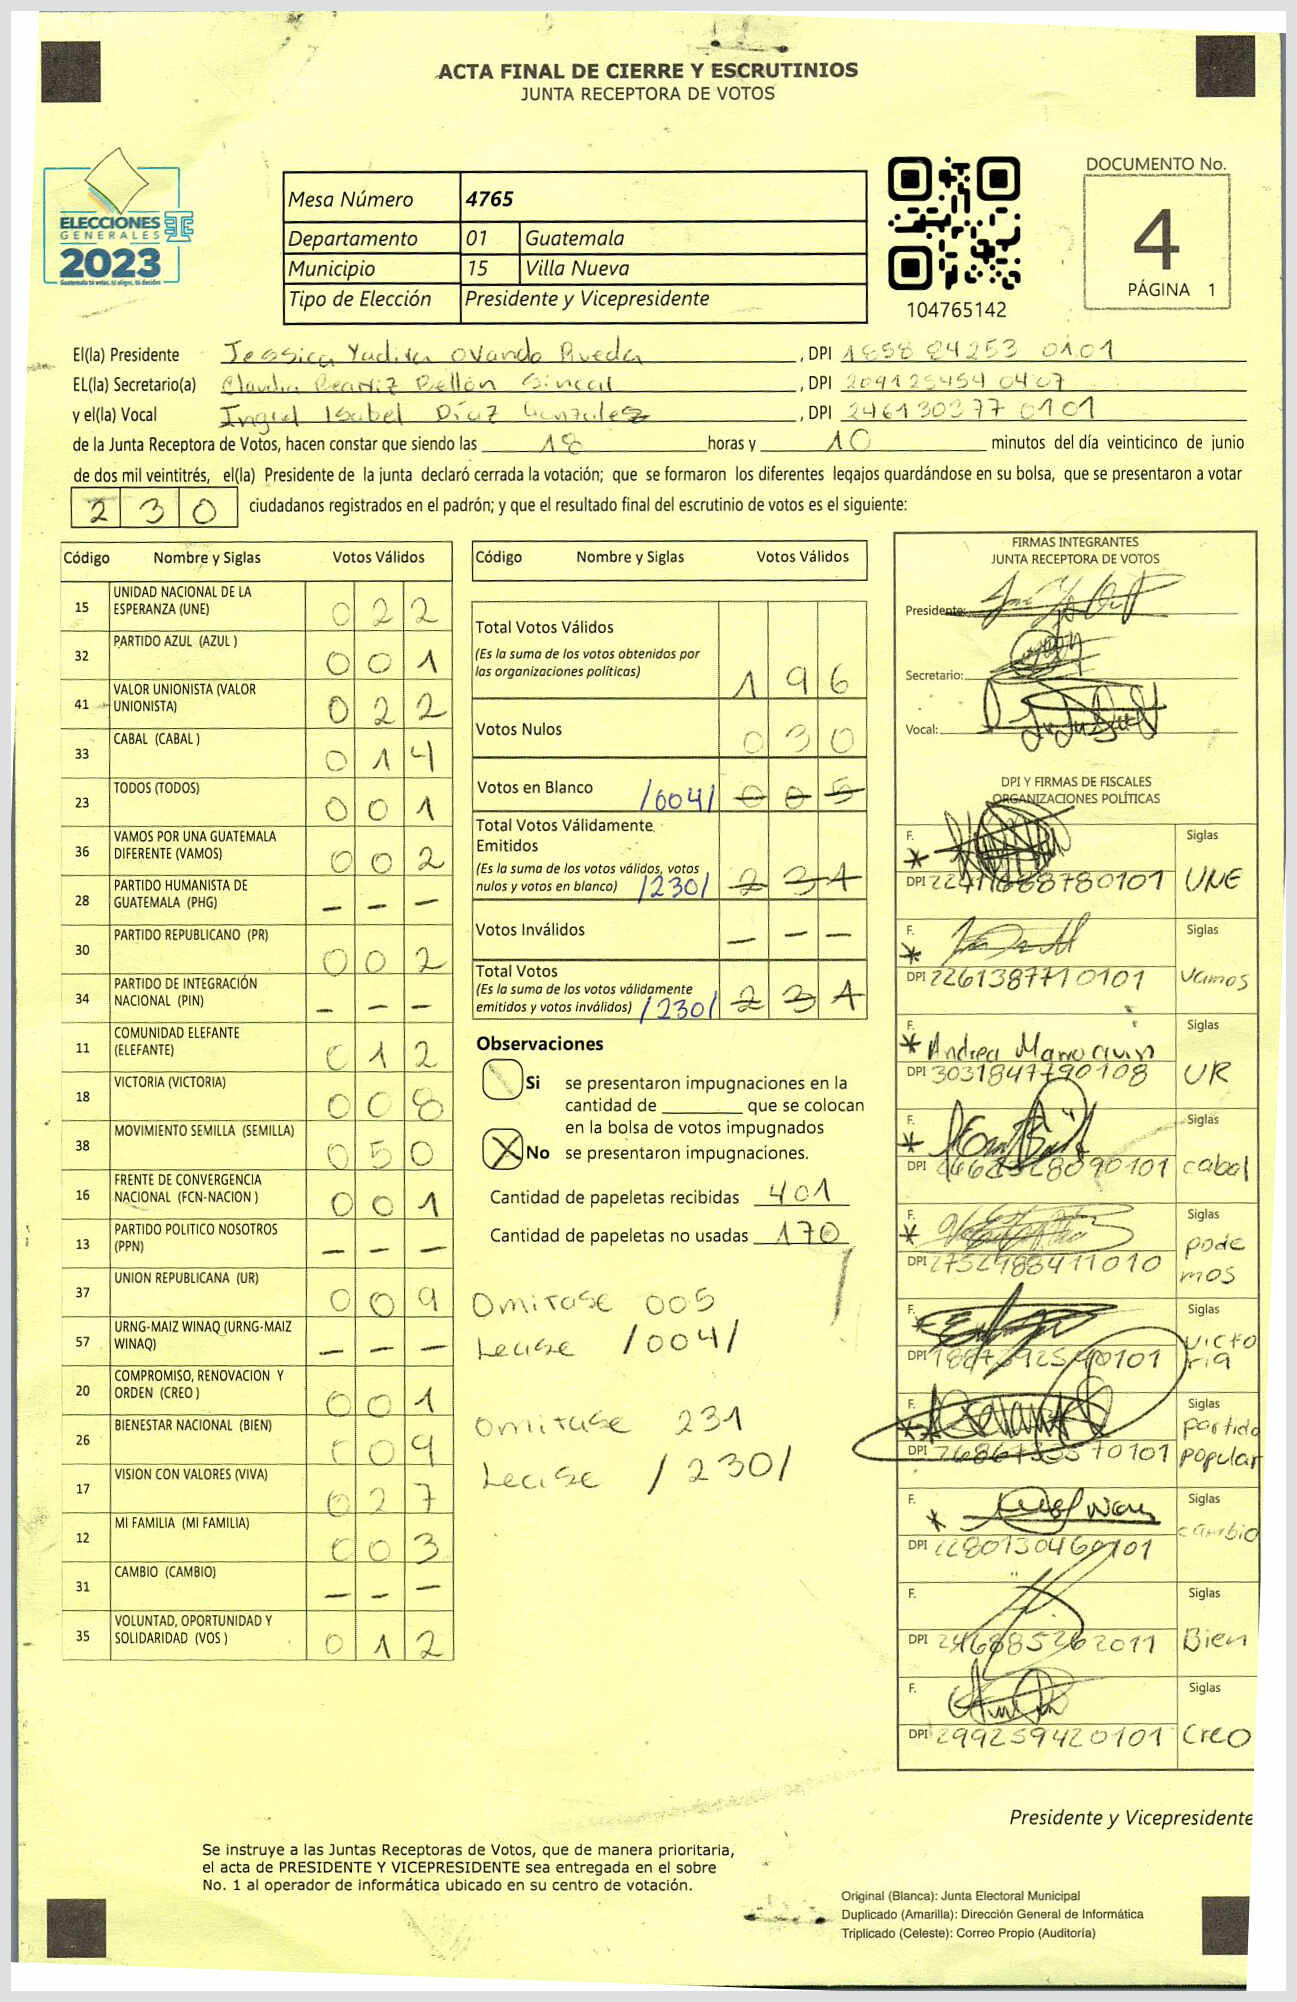 ACTA FINAL DE CIERRE Y ESCRUTINIOS
JUNTA RECEPTORA DE VOTOS
ELECCIONES
GENERALES
2023
Guatemala tú votas, tú eliges, tú decides
Mesa Número 4765
Departamento 01 Guatemala
Municipio 15 Villa Nueva
Tipo de Elección Presidente y Vicepresidente
104765142
DOCUMENTO No.
4
PÁGINA 1
El(la) Presidente Jessica Yadira Ovando Rueda, DPI 1858 84253 0101
EL(la) Secretario(a) Claudia Beatriz Bellón Sincal, DPI 209125454 0407
y el(la) Vocal Ingrid Isabel Díaz Gonzales, DPI 246130377 0101
de la Junta Receptora de Votos, hacen constar que siendo las 18 horas y 10 minutos del día veinticinco de junio
de dos mil veintitrés, el(la) Presidente de la junta declaró cerrada la votación; que se formaron los diferentes legajos guardándose en su bolsa, que se presentaron a votar
230 ciudadanos registrados en el padrón; y que el resultado final del escrutinio de votos es el siguiente:
Código Nombre y Siglas Votos Válidos
15 UNIDAD NACIONAL DE LA ESPERANZA (UNE) 022
32 PARTIDO AZUL (AZUL ) 001
41 VALOR UNIONISTA (VALOR UNIONISTA) 022
33 CABAL (CABAL ) 014
23 TODOS (TODOS) 001
36 VAMOS POR UNA GUATEMALA DIFERENTE (VAMOS) 002
28 PARTIDO HUMANISTA DE GUATEMALA (PHG) - - -
30 PARTIDO REPUBLICANO (PR) 002
34 PARTIDO DE INTEGRACIÓN NACIONAL (PIN) - - -
11 COMUNIDAD ELEFANTE (ELEFANTE) 012
18 VICTORIA (VICTORIA) 008
38 MOVIMIENTO SEMILLA (SEMILLA) 050
16 FRENTE DE CONVERGENCIA NACIONAL (FCN-NACION ) 001
13 PARTIDO POLITICO NOSOTROS (PPN) - - -
37 UNION REPUBLICANA (UR) 009
57 URNG-MAIZ WINAQ (URNG-MAIZ WINAQ) - - -
20 COMPROMISO, RENOVACION Y ORDEN (CREO ) 001
26 BIENESTAR NACIONAL (BIEN) 009
17 VISION CON VALORES (VIVA) 027
12 MI FAMILIA (MI FAMILIA) 003
31 CAMBIO (CAMBIO) - - -
35 VOLUNTAD, OPORTUNIDAD Y SOLIDARIDAD (VOS ) 012
Código Nombre y Siglas Votos Válidos
Total Votos Válidos
(Es la suma de los votos obtenidos por
las organizaciones políticas) 196
Votos Nulos 030
Votos en Blanco /004/ 005
Total Votos Válidamente
Emitidos
(Es la suma de los votos válidos, votos
nulos y votos en blanco) /230/ 231
Votos Inválidos - - -
Total Votos
(Es la suma de los votos válidamente
emitidos y votos inválidos) /230/ 231
Observaciones
Si se presentaron impugnaciones en la
cantidad de ________ que se colocan
en la bolsa de votos impugnados
X No se presentaron impugnaciones.
Cantidad de papeletas recibidas 401
Cantidad de papeletas no usadas 170
Omitase 005
Lease /004/
Omitase 231
Lease /230/
FIRMAS INTEGRANTES
JUNTA RECEPTORA DE VOTOS
Presidente:
Secretario:
Vocal:
DPI Y FIRMAS DE FISCALES
ORGANIZACIONES POLÍTICAS
F. Siglas
DPI UNE
F. Siglas
DPI 2261387710101 Vamos
F. Andrea Marroquin Siglas
DPI 3031847790108 UR
F. Siglas
DPI cabal
F. Siglas
DPI podemos
F. Siglas
DPI victoria
F. Siglas
DPI partido popular
F. Siglas
DPI 2280130460101 cambio
F. Siglas
DPI Bien
F. Siglas
DPI 299259420101 Creo
Presidente y Vicepresidente
Se instruye a las Juntas Receptoras de Votos, que de manera prioritaria,
el acta de PRESIDENTE Y VICEPRESIDENTE sea entregada en el sobre
No. 1 al operador de informática ubicado en su centro de votación.
Original (Blanca): Junta Electoral Municipal
Duplicado (Amarilla): Dirección General de Informática
Triplicado (Celeste): Correo Propio (Auditoría)